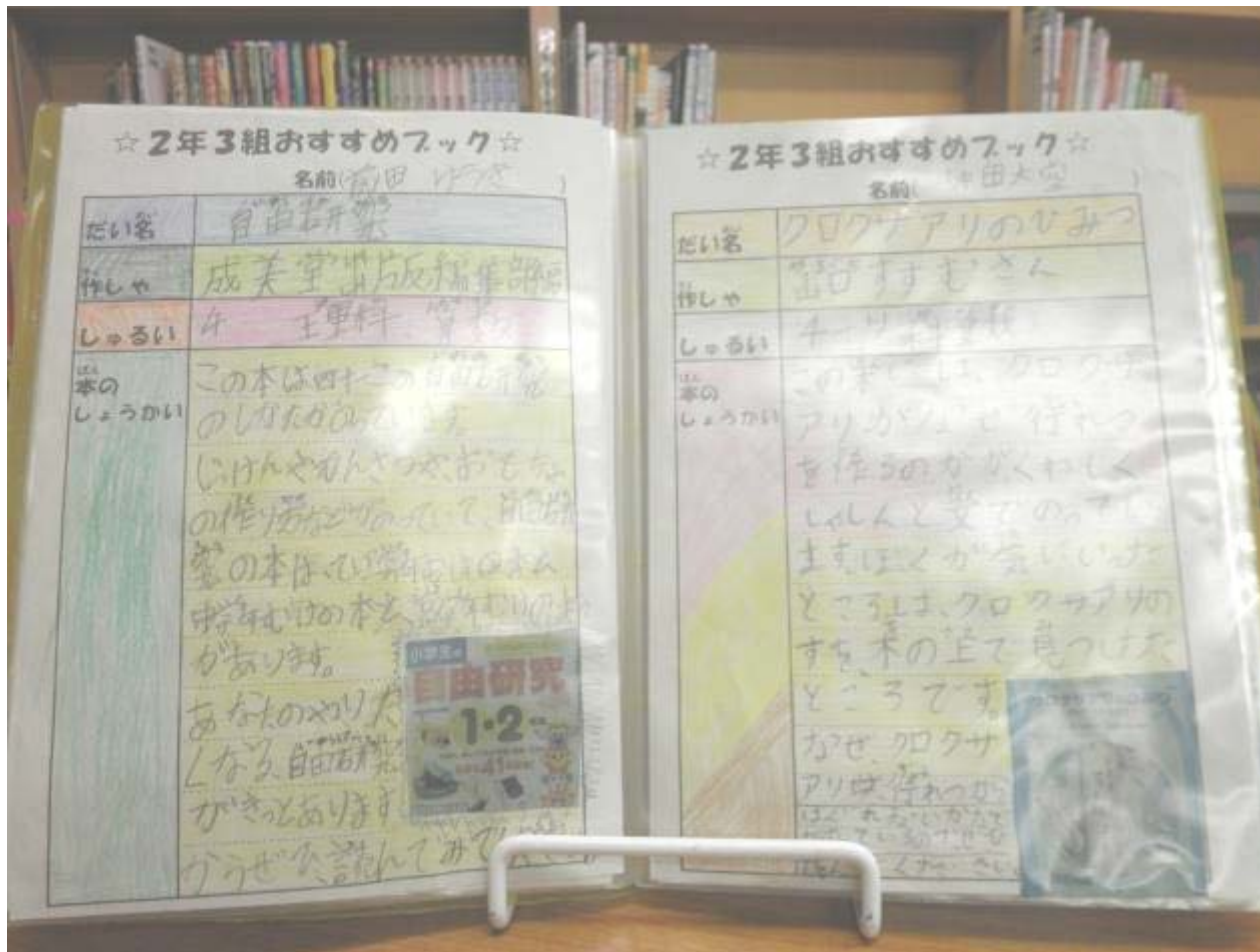 ☆2年3組おすすめブック☆
名前( 田 )
だい名 自由研究
作しゃ 成美堂出版編集部編
しゅるい 4 理科 算数
本の
しょうかい
この本は四十この自由研究
のしかたがのっています。
じっけんやかんさつや、おもちゃ
の作り方などがのっていて、自由研
究の本は、てい学年むけの本
中学年むけの本と、高学年むけの本
があります。
あなたのやりた
くなる、自由研究
がきっとあります
からぜひ、読んでみて
小学生の
自由研究
1・2
41
☆2年3組おすすめブック☆
名前( 田大空 )
だい名 クロクサアリのひみつ
作しゃ すすむさん
しゅるい 4
本の
しょうかい
この本には、クロクサ
アリがなぜ行れつ
を作るのかがくわしく
しゃしんと文でのってい
ます。ぼくが気にいった
ところは、クロクサアリの
すを、木の上で見つけた
ところです。
なぜ、クロクサ
アリは行れつから
はぐれないかな
ください。